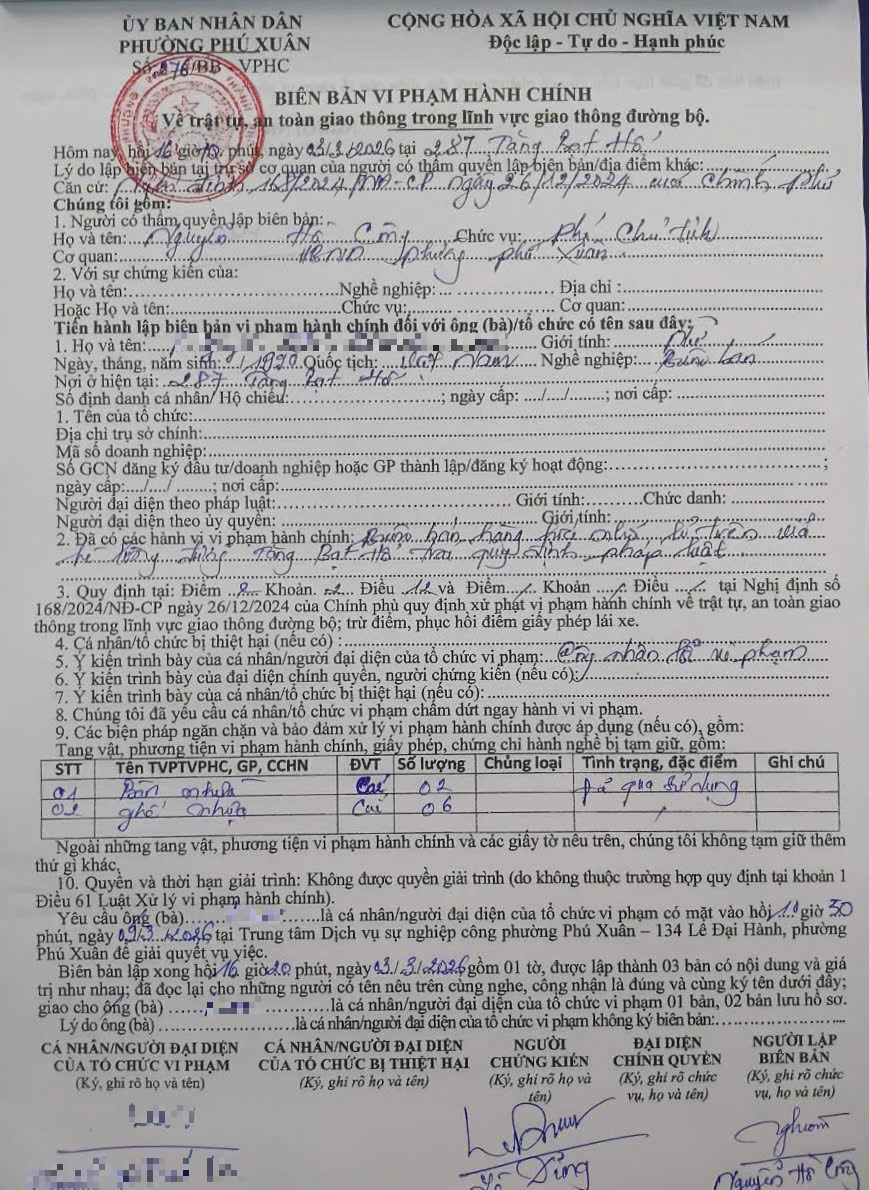 ỦY BAN NHÂN DÂN
PHƯỜNG PHÚ XUÂN
Số: 276/BB - VPHC
CỘNG HÒA XÃ HỘI CHỦ NGHĨA VIỆT NAM
Độc lập - Tự do - Hạnh phúc
BIÊN BẢN VI PHẠM HÀNH CHÍNH
Về trật tự, an toàn giao thông trong lĩnh vực giao thông đường bộ.
Hôm nay, hồi 16 giờ 10 phút, ngày 03/3/2026 tại 287 Tăng Bạt Hổ
Lý do lập biên bản tại trụ sở cơ quan của người có thẩm quyền lập biên bản/địa điểm khác:
Căn cứ: Nghị định 168/2024/NĐ-CP ngày 26/12/2024 của Chính phủ
Chúng tôi gồm:
1. Người có thẩm quyền lập biên bản:
Họ và tên: Nguyễn Hồ Công, Chức vụ: Phó Chủ tịch
Cơ quan: UBND phường Phú Xuân
2. Với sự chứng kiến của:
Họ và tên: Nghề nghiệp: Địa chỉ :
Hoặc Họ và tên: Chức vụ: Cơ quan:
Tiến hành lập biên bản vi phạm hành chính đối với ông (bà)/tổ chức có tên sau đây:
1. Họ và tên: Giới tính: Nữ
Ngày, tháng, năm sinh: / /1970 Quốc tịch: Việt Nam Nghề nghiệp: Buôn bán
Nơi ở hiện tại: 287 Tăng Bạt Hổ
Số định danh cá nhân/ Hộ chiếu: ; ngày cấp: ..../..../.......; nơi cấp:
1. Tên của tổ chức:
Địa chỉ trụ sở chính:
Mã số doanh nghiệp:
Số GCN đăng ký đầu tư/doanh nghiệp hoặc GP thành lập/đăng ký hoạt động: ;
ngày cấp:..../..../ .......; nơi cấp:
Người đại diện theo pháp luật: Giới tính: Chức danh:
Người đại diện theo ủy quyền: Giới tính:
2. Đã có các hành vi vi phạm hành chính: Buôn bán hàng nhỏ lẻ trên vỉa
hè đường Tăng Bạt Hổ, trái quy định pháp luật
3. Quy định tại: Điểm Khoản 2 Điều 12 và Điểm / Khoản / Điều / tại Nghị định số
168/2024/NĐ-CP ngày 26/12/2024 của Chính phủ quy định xử phạt vi phạm hành chính về trật tự, an toàn giao
thông trong lĩnh vực giao thông đường bộ; trừ điểm, phục hồi điểm giấy phép lái xe.
4. Cá nhân/tổ chức bị thiệt hại (nếu có) :
5. Ý kiến trình bày của cá nhân/người đại diện của tổ chức vi phạm: Công nhận lỗi vi phạm
6. Ý kiến trình bày của đại diện chính quyền, người chứng kiến (nếu có):
7. Ý kiến trình bày của cá nhân/tổ chức bị thiệt hại (nếu có):
8. Chúng tôi đã yêu cầu cá nhân/tổ chức vi phạm chấm dứt ngay hành vi vi phạm.
9. Các biện pháp ngăn chặn và bảo đảm xử lý vi phạm hành chính được áp dụng (nếu có), gồm:
Tang vật, phương tiện vi phạm hành chính, giấy phép, chứng chỉ hành nghề bị tạm giữ, gồm:
STT Tên TVPTVPHC, GP, CCHN ĐVT Số lượng Chủng loại Tình trạng, đặc điểm Ghi chú
01 Bàn nhựa Cái 02 Đã qua sử dụng
02 ghế nhựa Cái 06
Ngoài những tang vật, phương tiện vi phạm hành chính và các giấy tờ nêu trên, chúng tôi không tạm giữ thêm
thứ gì khác.
10. Quyền và thời hạn giải trình: Không được quyền giải trình (do không thuộc trường hợp quy định tại khoản 1
Điều 61 Luật Xử lý vi phạm hành chính).
Yêu cầu ông (bà) là cá nhân/người đại diện của tổ chức vi phạm có mặt vào hồi giờ 30
phút, ngày 09/3/2026 tại Trung tâm Dịch vụ sự nghiệp công phường Phú Xuân – 134 Lê Đại Hành, phường
Phú Xuân để giải quyết vụ việc.
Biên bản lập xong hồi 16 giờ 20 phút, ngày 03/3/2026 gồm 01 tờ, được lập thành 03 bản có nội dung và giá
trị như nhau; đã đọc lại cho những người có tên nêu trên cùng nghe, công nhận là đúng và cùng ký tên dưới đây;
giao cho ông (bà) là cá nhân/người đại diện của tổ chức vi phạm 01 bản, 02 bản lưu hồ sơ.
Lý do ông (bà) là cá nhân/người đại diện của tổ chức vi phạm không ký biên bản:
CÁ NHÂN/NGƯỜI ĐẠI DIỆN
CỦA TỔ CHỨC VI PHẠM
(Ký, ghi rõ họ và tên)
CÁ NHÂN/NGƯỜI ĐẠI DIỆN
CỦA TỔ CHỨC BỊ THIỆT HẠI
(Ký, ghi rõ họ và tên)
NGƯỜI
CHỨNG KIẾN
(Ký, ghi rõ họ và
tên)
Lê Dũng
ĐẠI DIỆN
CHÍNH QUYỀN
(Ký, ghi rõ chức
vụ, họ và tên)
NGƯỜI LẬP
BIÊN BẢN
(Ký, ghi rõ chức
vụ, họ và tên)
Nguyễn Hồ Công